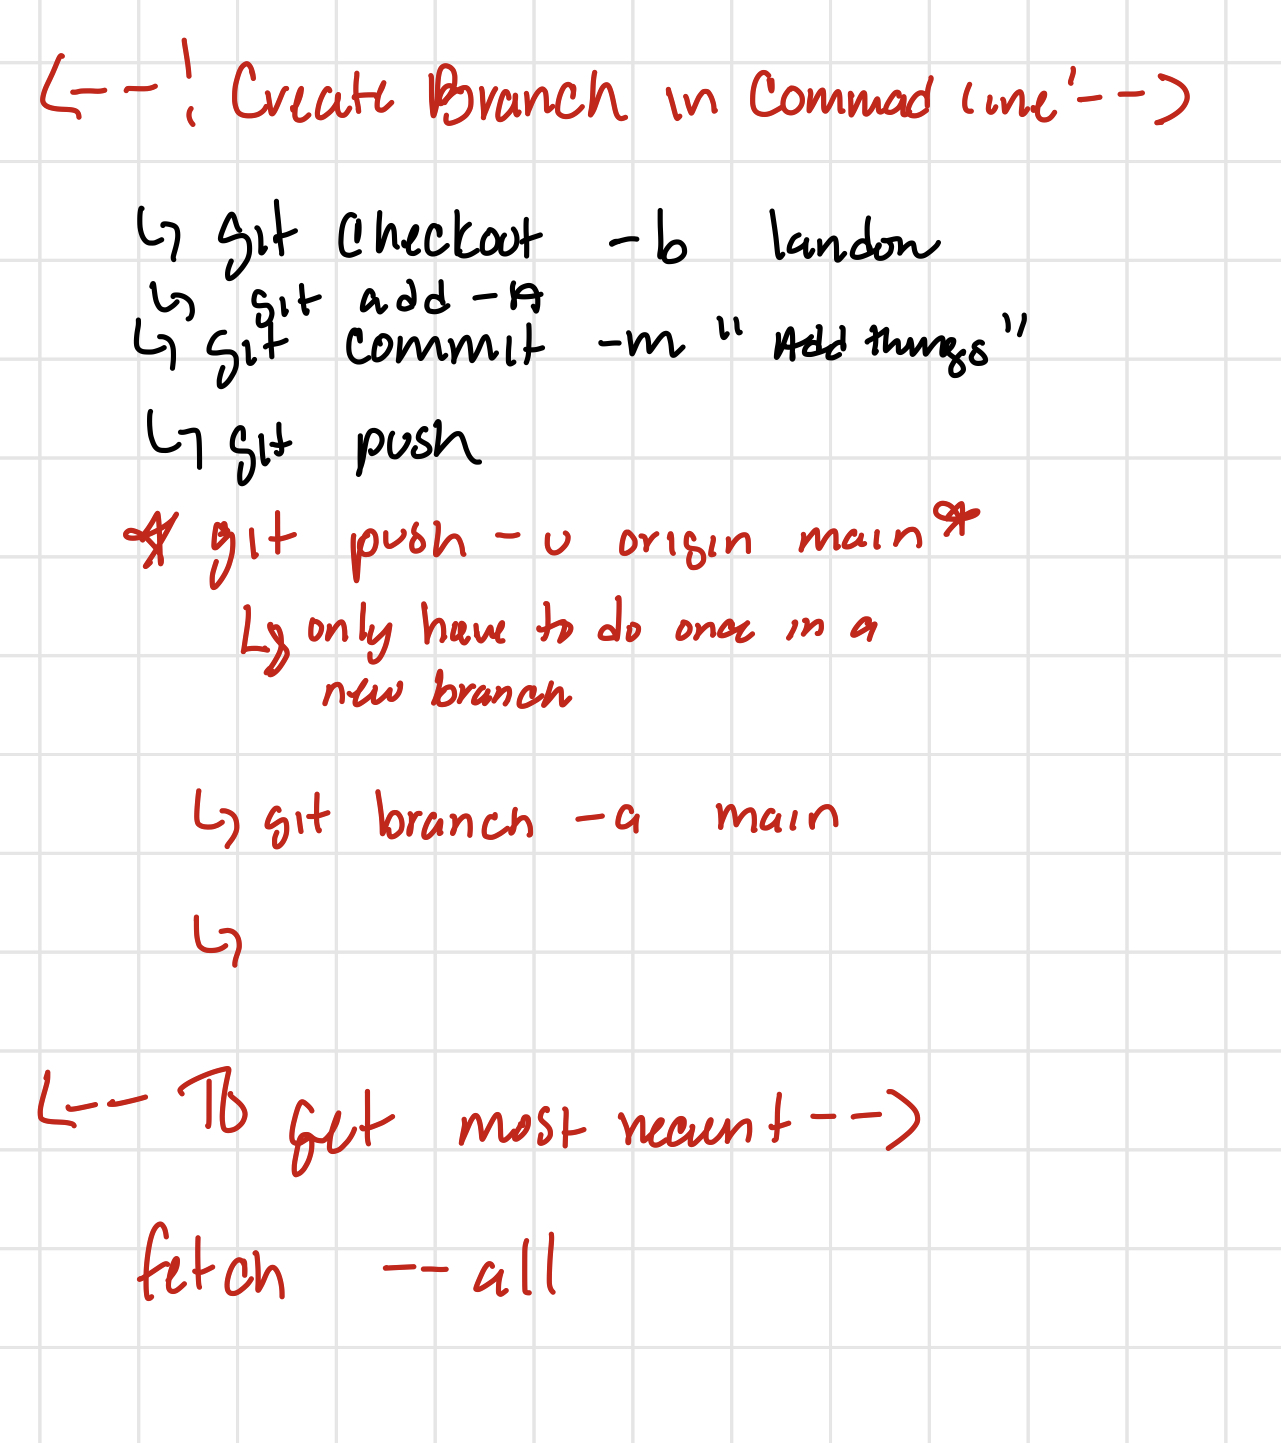 <--! Create Branch in Commad line'-->
↳ git checkout -b landon
↳ git add -A
↳ git commit -m "Add things"
↳ git push
* git push -u origin main *
↳ only have to do once in a
new branch
↳ git branch -a main
↳
<-- To get most recent -->
fetch --all